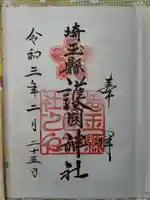 奉拝
埼玉縣護國神社
令和三年二月二十五日